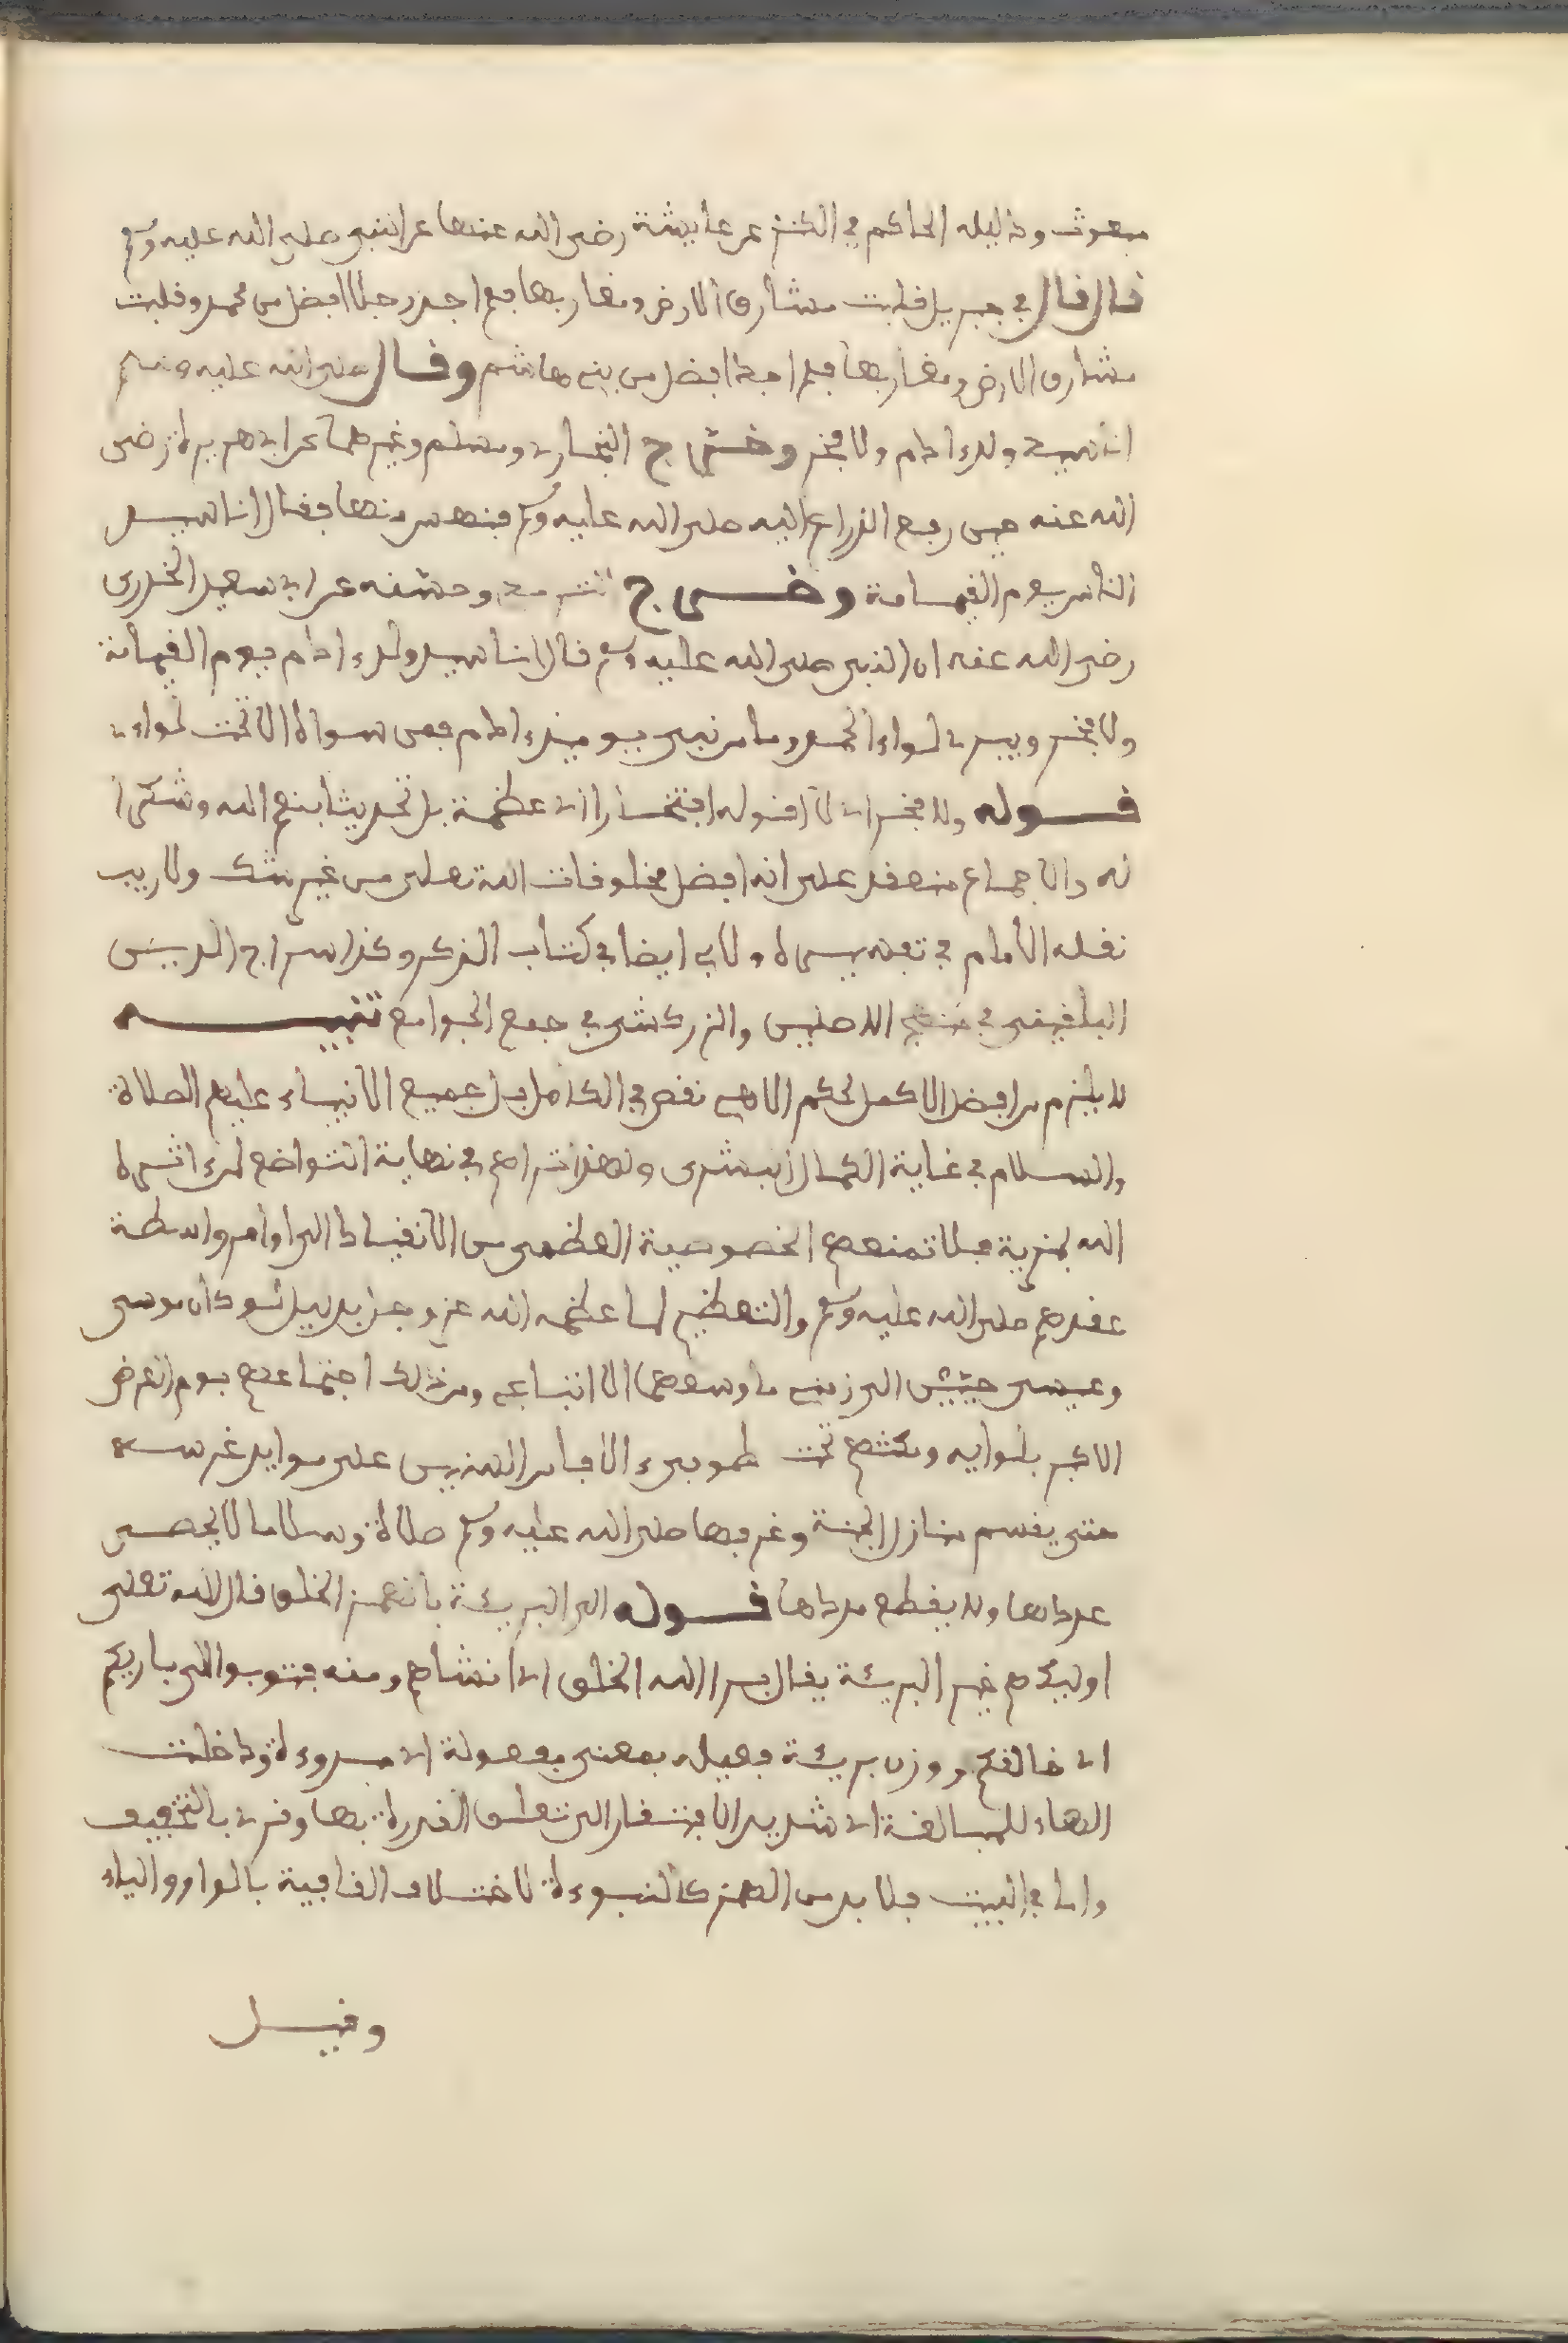 مبعوث ودليله الحاكم في الكنى عن عايشة رضى الله عنها عن النبي صلى الله عليه وسلم
قال قال لي جبريل قلبت مشارق الارض ومغاربها فلم اجد رجلا افضل من محمد وقلبت
مشارق الارض ومغاربها فلم اجد افضل من بني هاشم وقال صلى الله عليه وسلم
انا سيد ولد ءادم ولا فخر وخرج البخاري ومسلم وغيرهما عن ابي هريرة رضى
الله عنه حين رفع الذراع اليه صلى الله عليه وسلم فنهس منها فقال انا سيد
الناس يوم القيامة وخرج الترمذي وحسنه عن ابي سعيد الخدري
رضى الله عنه ان النبي صلى الله عليه وسلم قال انا سيد ولد ءادم يوم القيامة
ولا فخر وبيدي لواء الحمد وما من نبي يوميذ ءادم فمن سواه الا تحت لواءي
قوله ولا فخر اي لا اقوله افتخارا اي عظمة بل تحديثا بنعم الله وشكرا
له والاجماع منعقد على انه افضل مخلوقات الله تعلى من غير شك ولا ريب
نقله الامام في تفسيره ولابي ايضا في كتاب الذكر وكذا سراج الدين
البلقيني في منهج الاصلين والزركشي في جمع الجوامع تنبيه
لا يلزم من افضل الاكمل لحكم الاهي نقص في الكامل بل جميع الانبياء عليهم الصلاة
والسلام في غاية الكمال البشرى ولهذا تراهم في نهاية التواضع لمن اثره
الله بمزية فلا تمنعهم الخصوصية العظمى من الانقياد الى اوامر واسطة
عقدهم صلى الله عليه وسلم والتعظيم لما عظمه الله عز وجل بدليل لو كان موسى
وعيسى حيين الى زمني ما وسعهما الا اتباعي ومن ذلك اجتماعهم يوم العرض
الاكبر بلوايه ومكثهم تحت طوبى الاجاس اللذين على موايد غرسه
حتى يقسم منازل الجنة وغرفها صلى الله عليه وسلم صلاة وسلاما لا يحصى
عددها ولا يقطع مددها قوله الى البريئة بالهمز الخلق قال الله تعلى
اوليك هم خير البريئة يقال برا الله الخلق اي انشاهم ومنه فتوبوا الى باريكم
اي خالقكم ووزن بريئة فعيله بمعنى مفعولة اي مبروءة ودخلت
الهاء للمبالغة اي شديد الافتقار الى تعلق القدرة بها وقرى بالتخفيف
واما في البيت فلا بد من الهمز كالنبوءة لاختلاف القافية بالواو والياء
وقيل